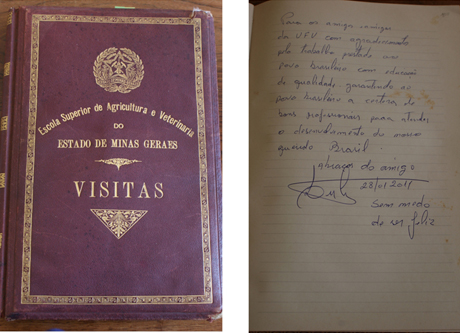 Escola Superior de Agricultura e Veterinaria
DO
ESTADO DE MINAS GERAES
VISITAS
Para os amigos
da U.F.V com agradecimento
pelo trabalho prestado ao
povo brasileiro com educação
de qualidade, garantindo ao
povo brasileiro a certeza de
bons profissionais para atender
o desenvolvimento de nosso
querido Brasil.
abraços do amigo
28/01/2011
Sem medo
de ser feliz